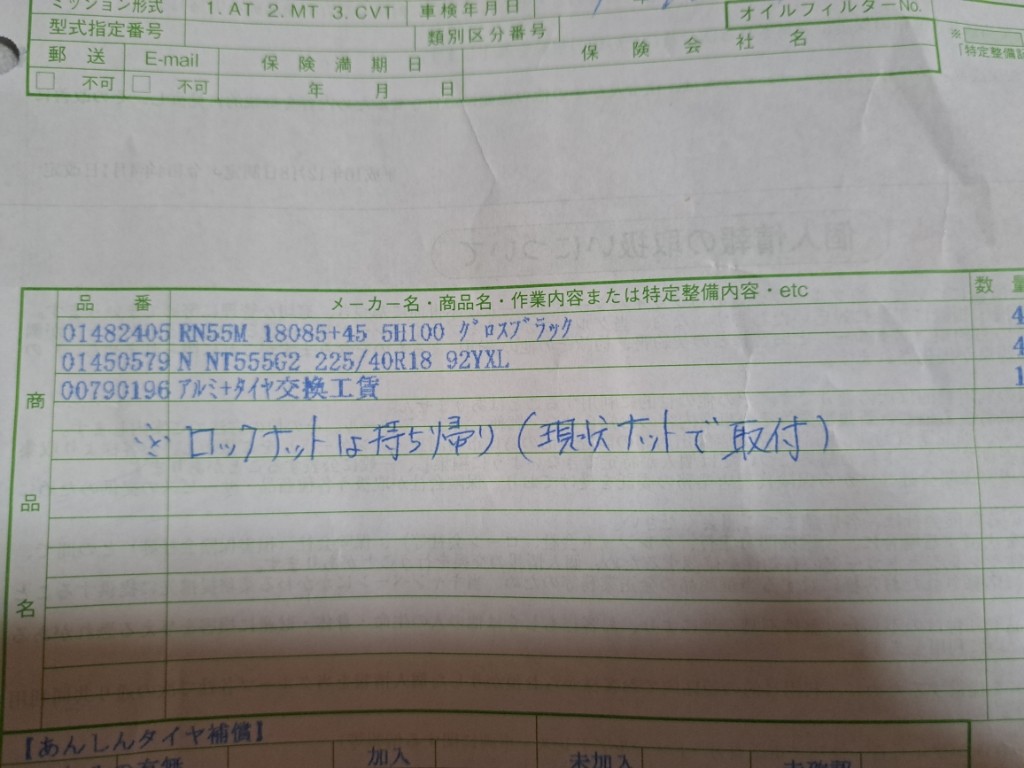 ミッション形式 1. AT 2. MT 3. CVT 車検年月日 オイルフィルターNo.
型式指定番号 類別区分番号 ※
郵送 E-mail 保険満期日 保険会社名 「特定整備記
不可 不可 年 月 日
個人情報の取扱いについて
品番 メーカー名・商品名・作業内容または特定整備内容・etc 数量
01482405 RN55M 18085+45 5H100 グロスブラック 4
01450579 N NT555G2 225/40R18 92YXL 4
00790196 アルミ+タイヤ交換工賃 1
商品名
※ ロックナットは持ち帰り (現状ナットで取付)
【あんしんタイヤ補償】
加入 未加入